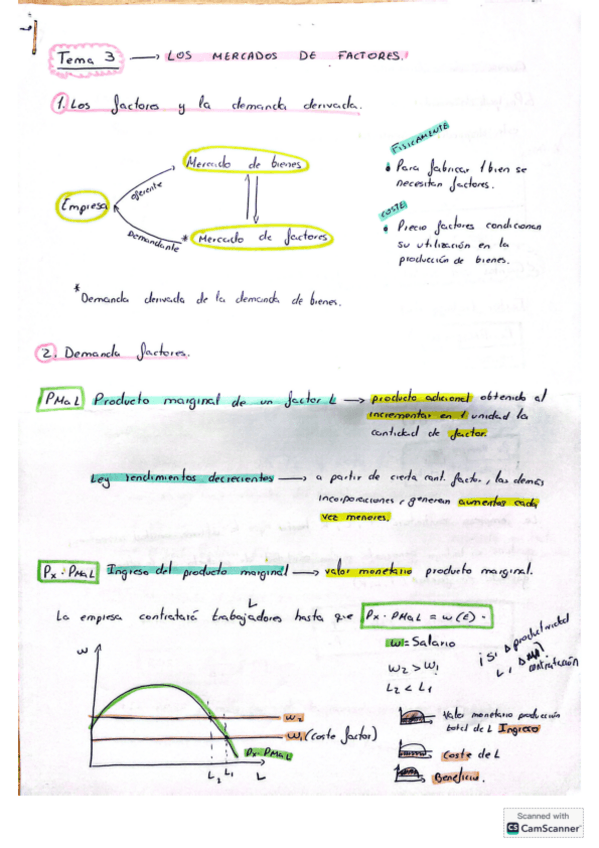 Tema 3 → LOS MERCADOS DE FACTORES.
1. Los factores y la demanda derivada.
Mercado de bienes
Empresa
oferente
Demandante
* Mercado de factores
FISICAMENTE
• Para fabricar 1 bien se
necesitan factores.
COSTE
• Precio factores condicionan
su utilización en la
producción de bienes.
* Demanda derivada de la demanda de bienes.
2. Demanda factores.
PMaL Producto marginal de un factor L → producto adicional obtenido al
incrementar en 1 unidad la
cantidad de factor.
Ley rendimientos decrecientes → a partir de cierta cant. factor, las demás
incorporaciones, generan aumentos cada
vez menores.
Px · PMaL Ingreso del producto marginal → valor monetario producto marginal.
L
La empresa contratará trabajadores hasta que Px · PMaL = w (L) ·
w = Salario
w2 > w1
L2 < L1
¡Si Δ productividad
L, Δ
contratación
w
w2
w1 (coste factor)
Px · PMaL
L2 L1 L
Valor monetario producción
total de L Ingreso
Coste de L
Beneficio.
Scanned with
CS CamScanner